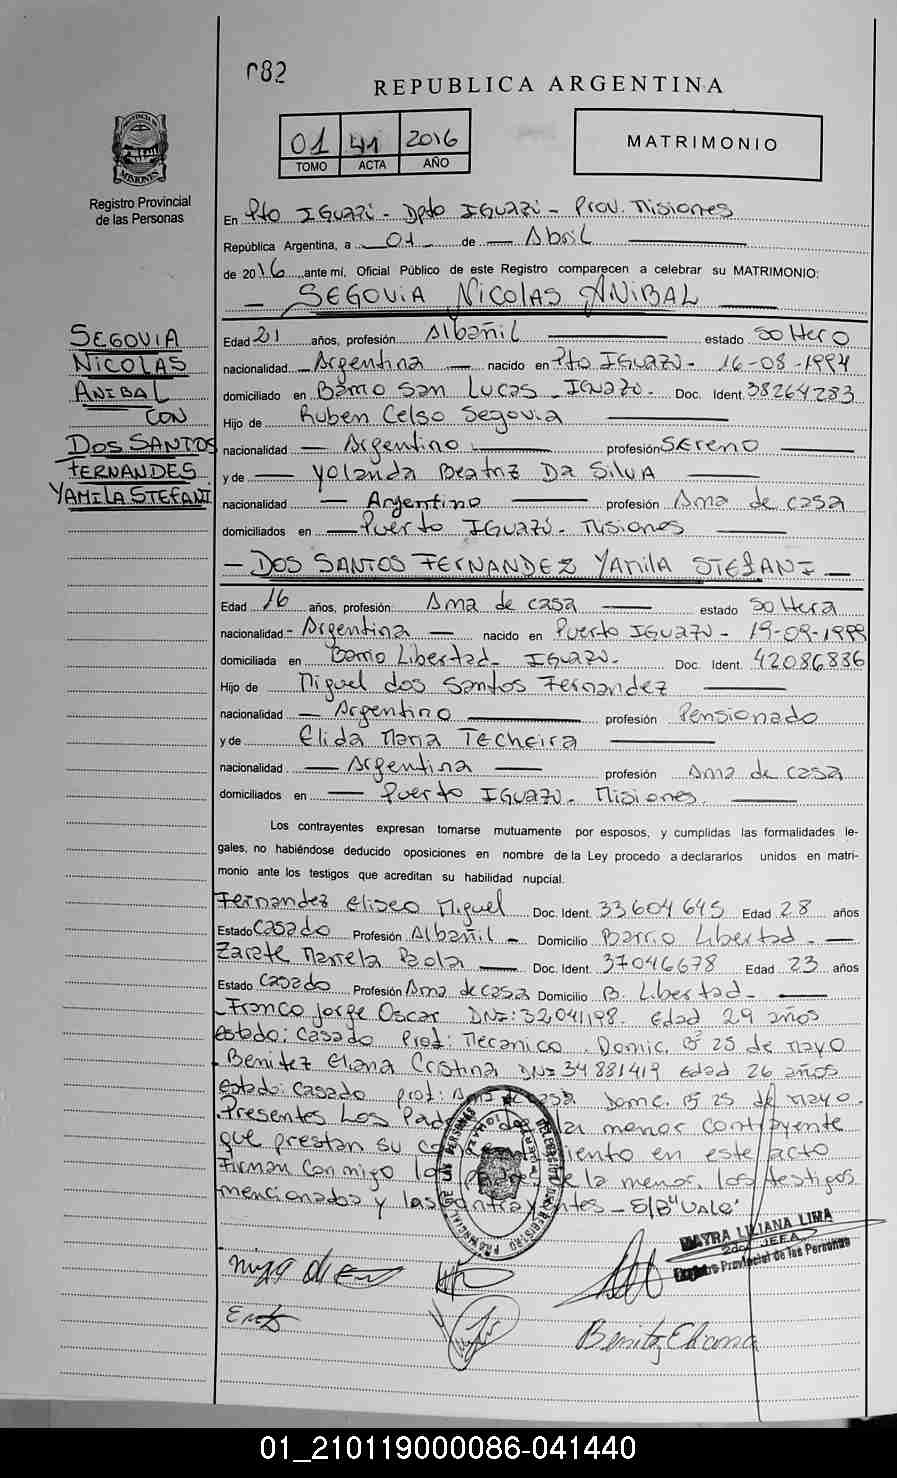 082
REPUBLICA ARGENTINA
01 41 2016
TOMO ACTA AÑO
MATRIMONIO
PROVINCIA DE MISIONES
Registro Provincial
de las Personas
SEGOVIA
NICOLAS
ANIBAL
CON
DOS SANTOS
FERNANDES
YAMILA STEFANI
En Pto IGUAZÚ - Dpto IGUAZÚ - Prov. Misiones
República Argentina, a 01 de Abril
de 2016 ante mí, Oficial Público de este Registro comparecen a celebrar su MATRIMONIO:
SEGOVIA NICOLAS ANIBAL
Edad 21 años, profesión Albañil estado Soltero
nacionalidad Argentina nacido en Pto IGUAZU - 16-08-1994
domiciliado en Barrio San Lucas - IGUAZU. Doc. Ident. 38264283
Hijo de Ruben Celso Segovia
nacionalidad Argentino profesión Sereno
y de Yolanda Beatriz Da Silva
nacionalidad Argentino profesión Ama de casa
domiciliados en Puerto IGUAZÚ - Misiones
DOS SANTOS FERNANDEZ YAMILA STEFANI
Edad 16 años, profesión: Ama de casa estado Soltera
nacionalidad Argentina nacido en Puerto IGUAZU - 19-09-1999
domiciliada en Barrio Libertad - IGUAZU. Doc. Ident. 42086836
Hijo de Miguel dos Santos Fernandez
nacionalidad Argentino profesión Pensionado
y de Elida Maria Techeira
nacionalidad Argentina profesión Ama de casa
domiciliados en Puerto IGUAZU - Misiones.
Los contrayentes expresan tomarse mutuamente por esposos, y cumplidas las formalidades le-
gales, no habiéndose deducido oposiciones en nombre de la Ley procedo a declararlos unidos en matri-
monio ante los testigos que acreditan su habilidad nupcial.
Fernandez Eliseo Miguel Doc. Ident. 33604645 Edad 28 años
Estado Casado Profesión Albañil Domicilio Barrio Libertad
Zarate Marrela Paola Doc. Ident. 37046678 Edad 23 años
Estado Casado Profesión Ama de casa Domicilio B. Libertad
Franco Jorge Oscar DNI: 32041198. Edad 29 años
estado: Casado Prof: Mecanico. Domic. Bº 25 de mayo
Benitez Eliana Cristina DNI 34881419 Edad 26 años
estado: Casado prof: Ama de casa Domc. Bº 25 de mayo.
Presentes Los menor contrayente
que prestan su en este acto
Firman conmigo los de la menor, los testigos
mencionados y las - E/B "VALE"
MAYRA LILIANA LIMA
2da. JEFA
Registro Provincial de las Personas
Benitez Eliana
01_210119000086-041440